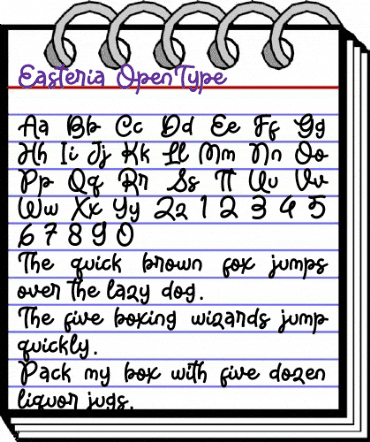 Easteria OpenType
Aa Bb Cc Dd Ee Ff Gg
Hh Ii Jj Kk Ll Mm Nn Oo
Pp Qq Rr Ss Tt Uu Vv
Ww Xx Yy Zz 1 2 3 4 5
6 7 8 9 0
The quick brown fox jumps
over the lazy dog.
The five boxing wizards jump
quickly.
Pack my box with five dozen
liquor jugs.